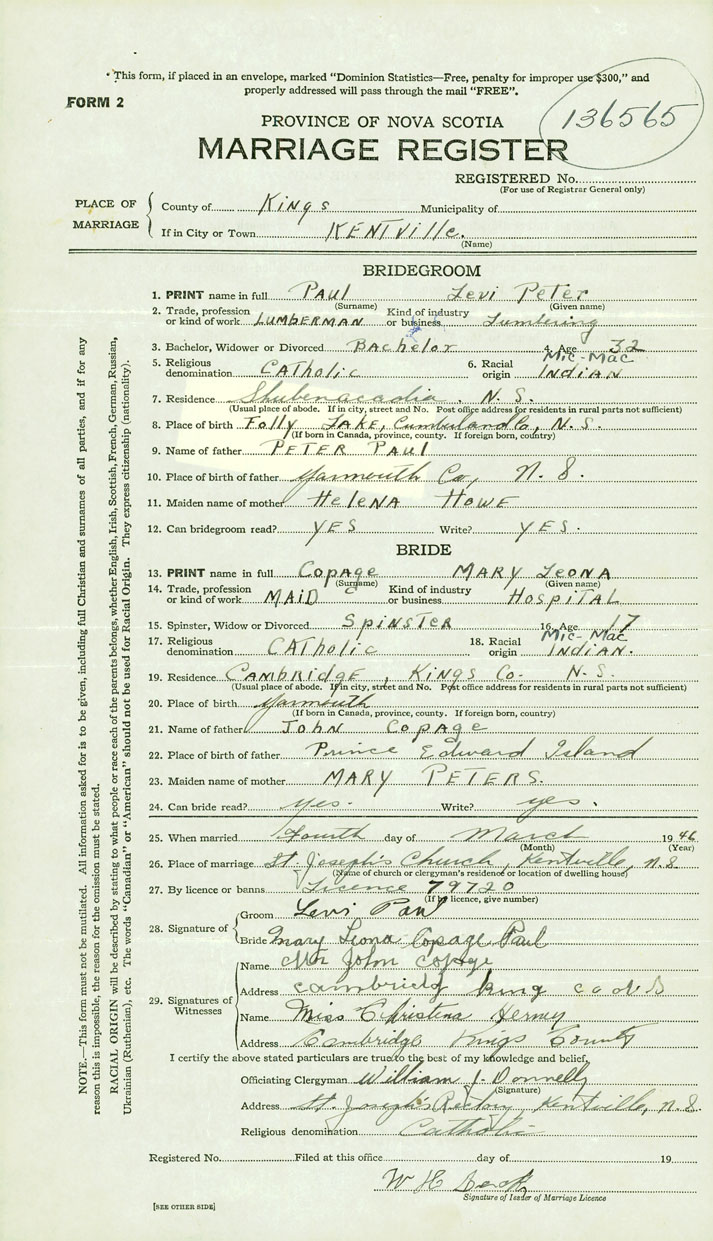 • This form, if placed in an envelope, marked “Dominion Statistics—Free, penalty for improper use $300,” and
properly addressed will pass through the mail “FREE”.
FORM 2
136565
PROVINCE OF NOVA SCOTIA
MARRIAGE REGISTER
REGISTERED No.
(For use of Registrar General only)
PLACE OF MARRIAGE
County of Kings Municipality of
If in City or Town KENTVILLE.
(Name)
BRIDEGROOM
1. PRINT name in full PAUL Levi Peter
(Surname) (Given name)
2. Trade, profession or kind of work LUMBERMAN Kind of industry or business Lumbering
3. Bachelor, Widower or Divorced BACHELOR 4. Age 32
5. Religious denomination CATHOLIC 6. Racial origin Mic-Mac INDIAN
7. Residence Shubenacadia. N. S.
(Usual place of abode. If in city, street and No. Post office address for residents in rural parts not sufficient)
8. Place of birth Folly LAKE, Cumberland Co, N. S.
(If born in Canada, province, county. If foreign born, country)
9. Name of father PETER PAUL
10. Place of birth of father Yarmouth Co, N. S.
11. Maiden name of mother HELENA HOWE
12. Can bridegroom read? YES Write? YES.
BRIDE
13. PRINT name in full COPAGE MARY LEONA
(Surname) (Given name)
14. Trade, profession or kind of work MAID Kind of industry or business HOSPITAL
15. Spinster, Widow or Divorced SPINSTER 16. Age 17
17. Religious denomination CATHOLIC 18. Racial origin Mic-Mac INDIAN.
19. Residence CAMBRIDGE, KINGS Co- N-S.
(Usual place of abode. If in city, street and No. Post office address for residents in rural parts not sufficient)
20. Place of birth Yarmouth
(If born in Canada, province, county. If foreign born, country)
21. Name of father JOHN COPAGE
22. Place of birth of father Prince Edward Island
23. Maiden name of mother MARY PETERS.
24. Can bride read? yes. Write? yes.
25. When married Fourth day of March 1946
(Month) (Year)
26. Place of marriage St. Joseph's Church, Kentville, N.S.
(Name of church or clergyman's residence or location of dwelling house)
27. By licence or banns Licence 79720
(If by licence, give number)
28. Signature of
Groom Levi Paul
Bride Mary Leona Copage Paul
29. Signatures of Witnesses
Name Mr John Copage
Address cambridg king co N S
Name Miss Christina
Address Cambridge Kings County
I certify the above stated particulars are true to the best of my knowledge and belief,
Officiating Clergyman William J. Donnelly
(Signature)
Address St. Joseph's Rectory Kentville, N.S.
Religious denomination Catholic
Registered No. Filed at this office day of 19
W H
Signature of Issuer of Marriage Licence
[SEE OTHER SIDE]
NOTE.—This form must not be mutilated. All information asked for is to be given, including full Christian and surnames of all parties, and if for any
reason this is impossible, the reason for the omission must be stated.
RACIAL ORIGIN will be described by stating to what people or race each of the parents belongs, whether English, Irish, Scottish, French, German, Russian,
Ukrainian (Ruthenian), etc. The words “Canadian” or “American” should not be used for Racial Origin. They express citizenship (nationality).